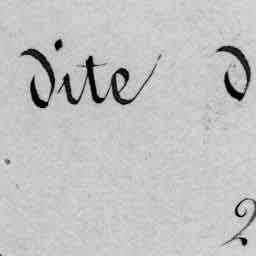 dite d
2